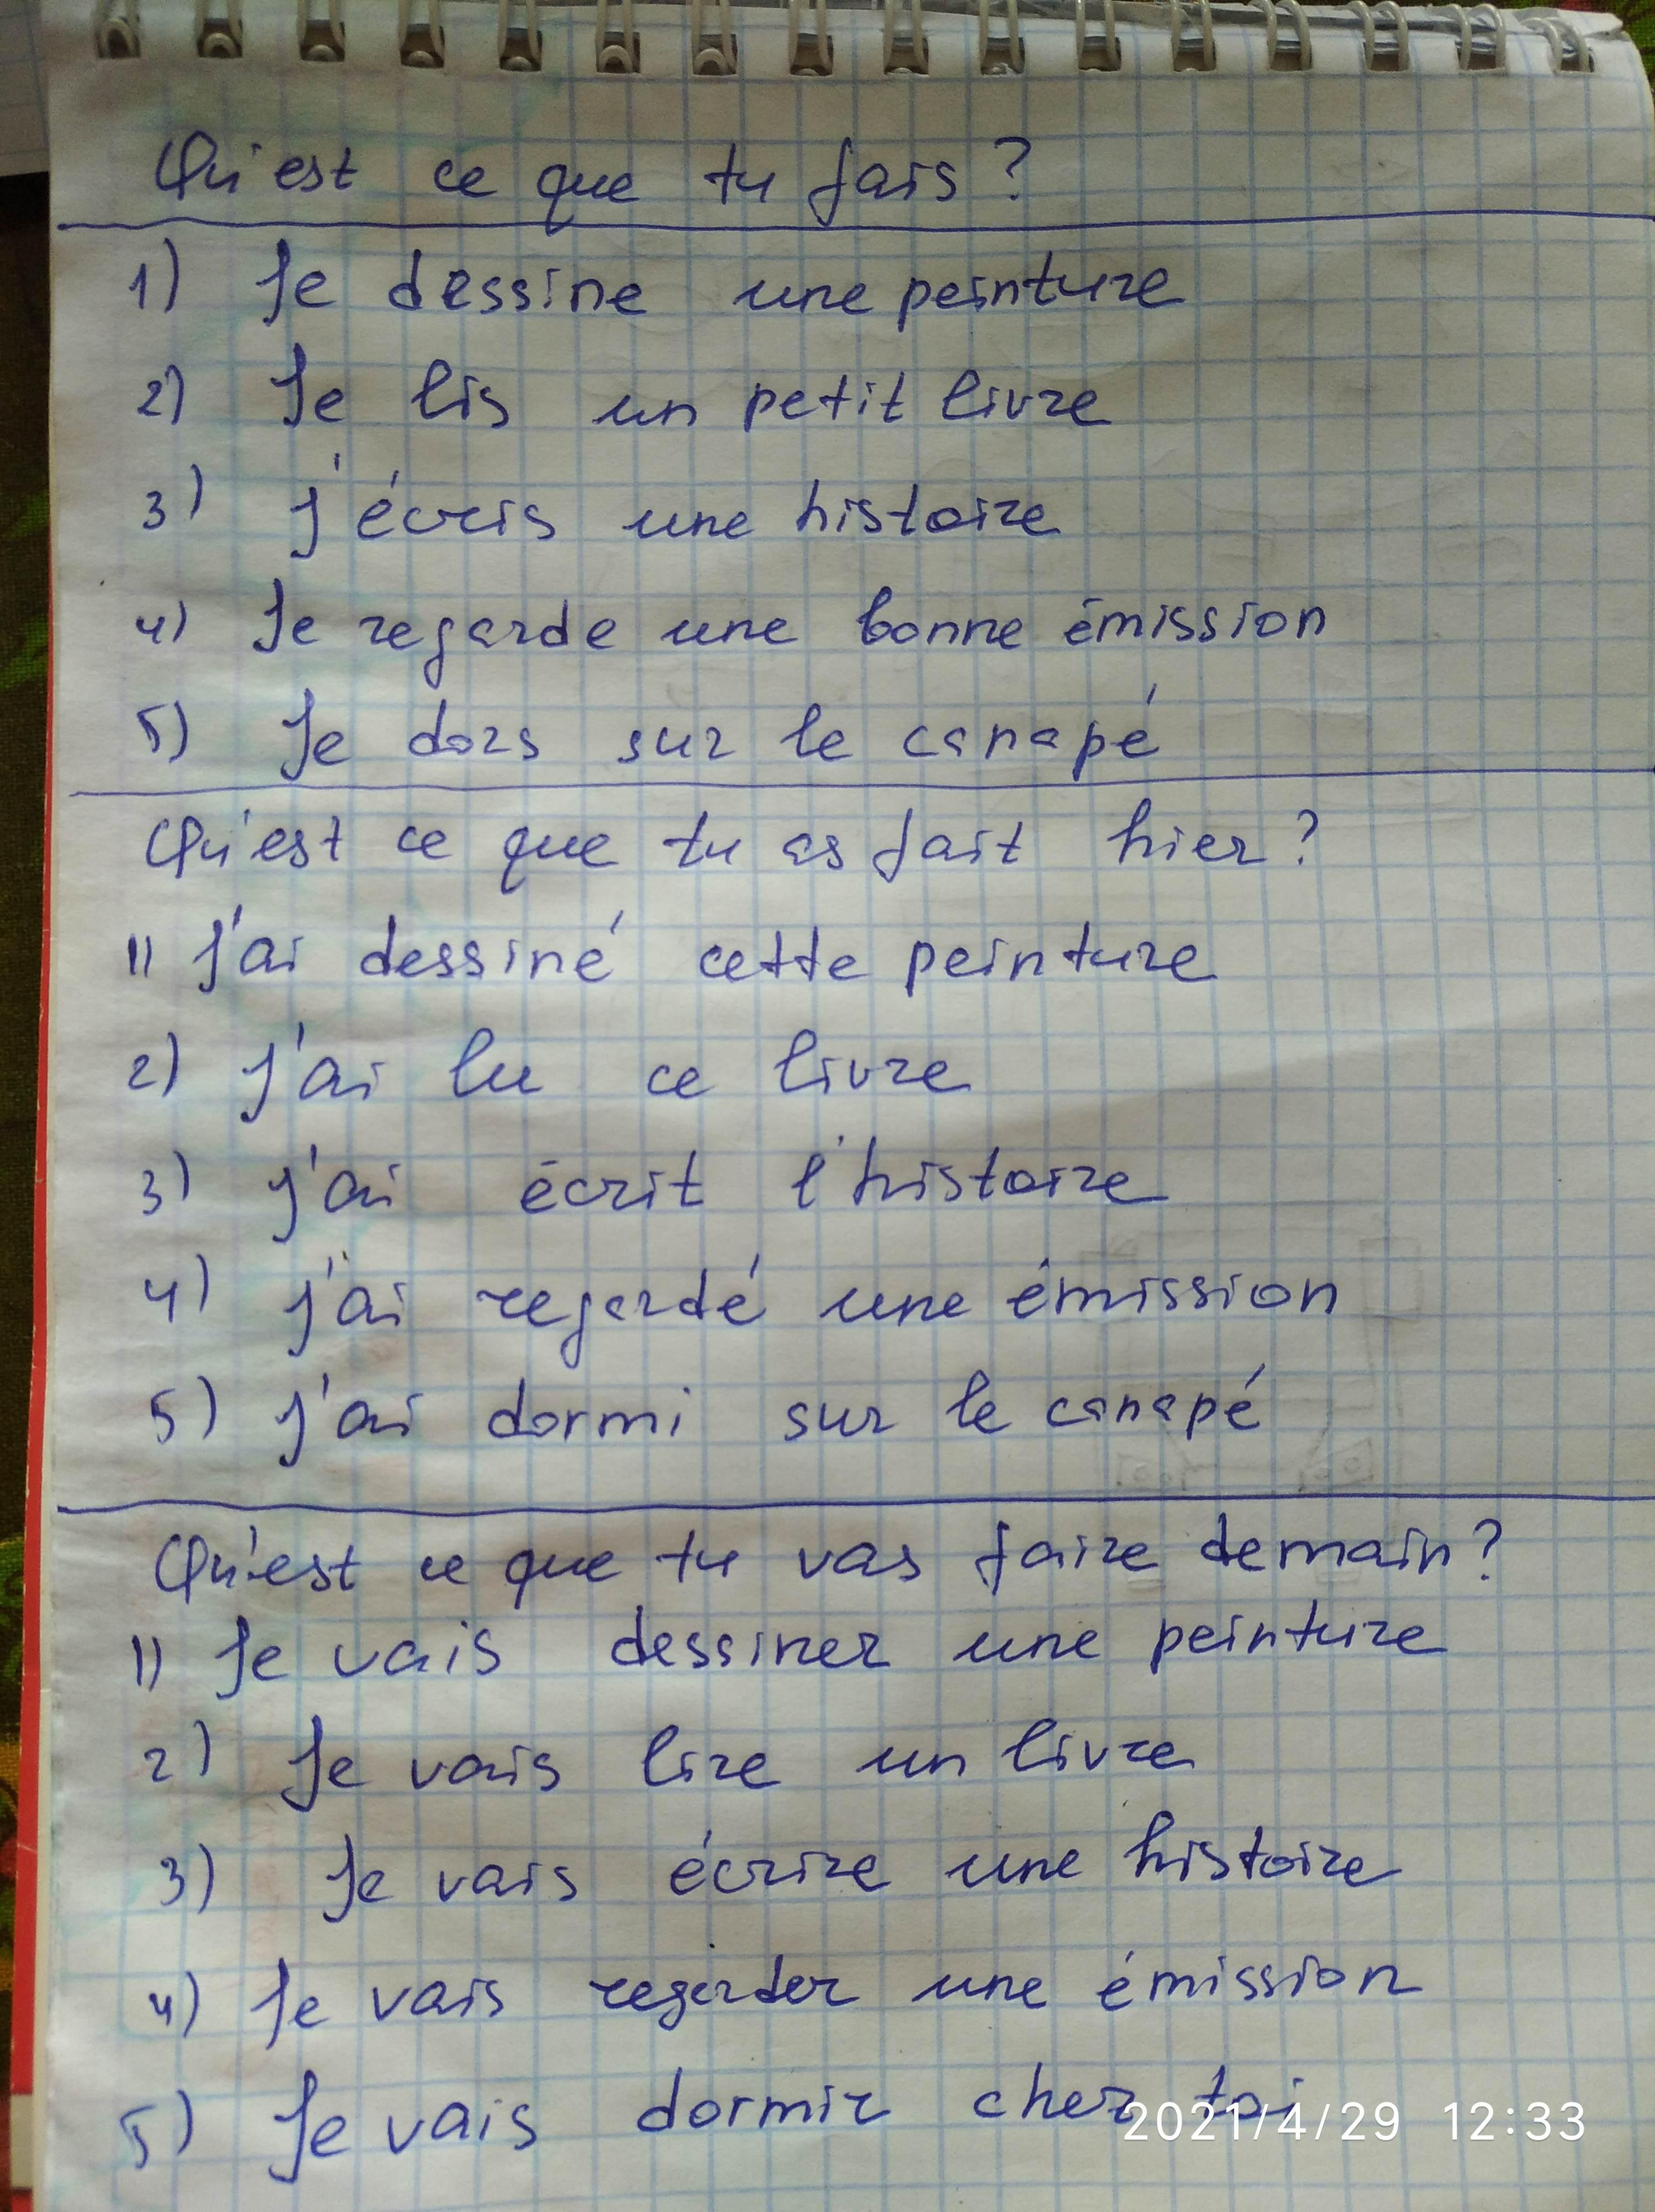 Qu'est ce que tu fais ?
1) Je dessine une peinture
2) Je lis un petit livre
3) J'écris une histoire
4) Je regarde une bonne émission
5) Je dors sur le canapé
Qu'est ce que tu as fait hier ?
1) J'ai dessiné cette peinture
2) J'ai lu ce livre
3) J'ai écrit l'histoire
4) J'ai regardé une émission
5) J'ai dormi sur le canapé
Qu'est ce que tu vas faire demain ?
1) Je vais dessiner une peinture
2) Je vais lire un livre
3) Je vais écrire une histoire
4) Je vais regarder une émission
5) Je vais dormir chez toi
2021/4/29 12:33